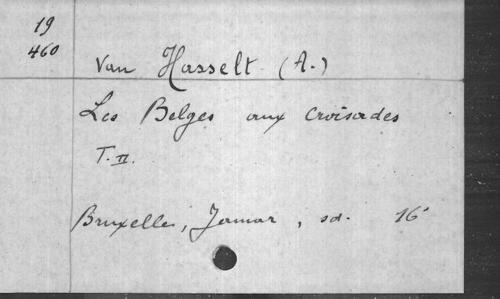 19
460
Van Hasselt (A.)
Les Belges aux croisades
T. II.
Bruxelles, Jamar, sd. 16°